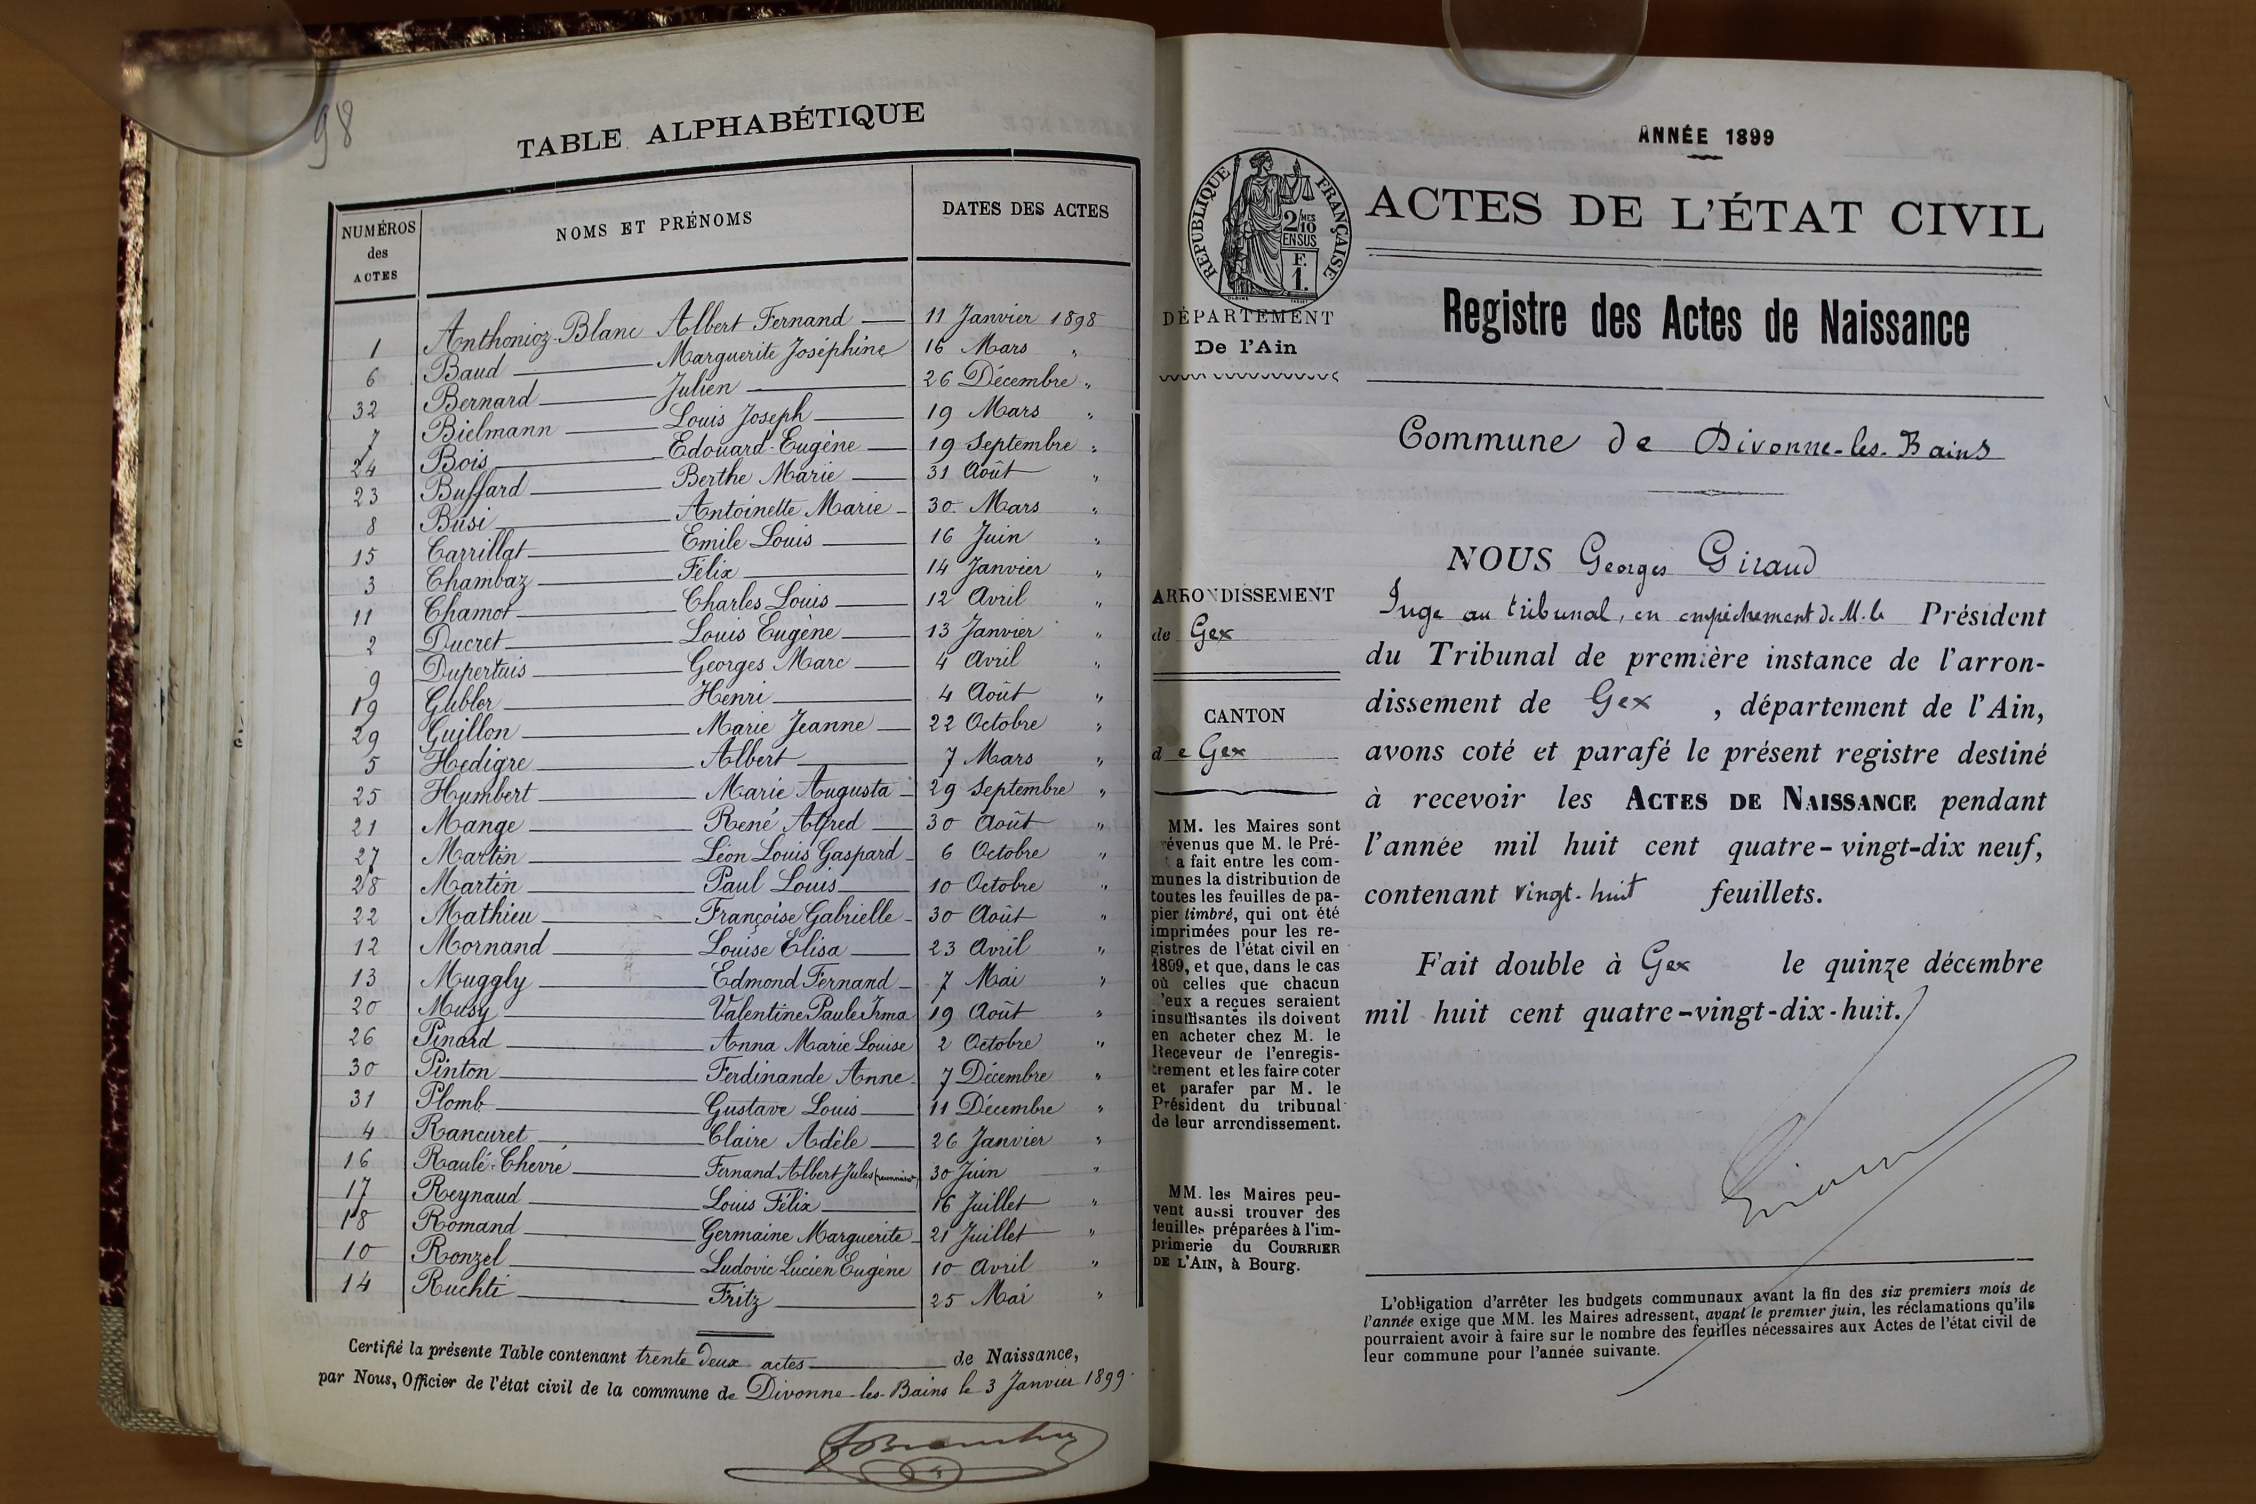 98
TABLE ALPHABÉTIQUE
NUMÉROS des ACTES NOMS ET PRÉNOMS DATES DES ACTES
1 Anthonioz-Blanc Albert Fernand 11 Janvier 1898
6 Baud Marguerite Joséphine 16 Mars "
32 Bernard Julien 26 Décembre "
7 Bielmann Louis Joseph 19 Mars "
24 Bois Edouard-Eugène 19 Septembre "
23 Buffard Berthe Marie 31 Août "
8 Busi Antoinette Marie 30 Mars "
15 Carrillat Emile Louis 16 Juin "
3 Chambaz Félix 14 Janvier "
11 Chamot Charles Louis 12 Avril "
2 Ducret Louis Eugène 13 Janvier "
9 Dupertuis Georges Marc 4 Avril "
19 Gubler Henri 4 Août "
29 Guillon Marie Jeanne 22 Octobre "
5 Hedigre Albert 7 Mars "
25 Humbert Marie Augusta 29 Septembre "
21 Mange René Alfred 30 Août "
27 Martin Léon Louis Gaspard 6 Octobre "
28 Martin Paul Louis 10 Octobre "
22 Mathieu Françoise Gabrielle 30 Août "
12 Mornand Louise Elisa 23 Avril "
13 Muggly Edmond Fernand 7 Mai "
20 Musy Valentine Paule Irma 19 Août "
26 Pinard Anna Marie Louise 2 Octobre "
30 Pinton Ferdinande Anne 7 Décembre "
31 Plomb Gustave Louis 11 Décembre "
4 Rancuret Claire Adèle 26 Janvier "
16 Raulé-Chevré Fernand Albert Jules 30 Juin "
17 Reynaud Louis Félix 16 Juillet "
18 Romand Germaine Marguerite 21 Juillet "
10 Ronzel Ludovic Lucien Eugène 10 Avril "
14 Ruchti Fritz 25 Mai "
Certifié la présente Table contenant trente deux actes de Naissance,
par Nous, Officier de l'état civil de la commune de Divonne-les-Bains le 3 Janvier 1899.
ANNÉE 1899
RÉPUBLIQUE FRANÇAISE
2/10 MES
EN SUS
F.
1.
ACTES DE L'ÉTAT CIVIL
DÉPARTEMENT
De l'Ain
Registre des Actes de Naissance
Commune de Divonne-les-Bains
ARRONDISSEMENT
de Gex
CANTON
de Gex
MM. les Maires sont
révenus que M. le Pré-
a fait entre les com-
munes la distribution de
toutes les feuilles de pa-
pier timbré, qui ont été
imprimées pour les re-
gistres de l'état civil en
1899, et que, dans le cas
où celles que chacun
'eux a reçues seraient
insuffisantes ils doivent
en acheter chez M. le
Receveur de l'enregis-
trement et les faire coter
et parafer par M. le
Président du tribunal
de leur arrondissement.
MM. les Maires peu-
vent aussi trouver des
feuilles préparées à l'im-
primerie du COURRIER
DE L'AIN, à Bourg.
NOUS Georges Giraud
Juge au tribunal, en empêchement de M. le Président
du Tribunal de première instance de l'arron-
dissement de Gex, département de l'Ain,
avons coté et parafé le présent registre destiné
à recevoir les ACTES DE NAISSANCE pendant
l'année mil huit cent quatre-vingt-dix neuf,
contenant vingt-huit feuillets.
Fait double à Gex le quinze décembre
mil huit cent quatre-vingt-dix-huit.
L'obligation d'arrêter les budgets communaux avant la fin des six premiers mois de
l'année exige que MM. les Maires adressent, avant le premier juin, les réclamations qu'ils
pourraient avoir à faire sur le nombre des feuilles nécessaires aux Actes de l'état civil de
leur commune pour l'année suivante.